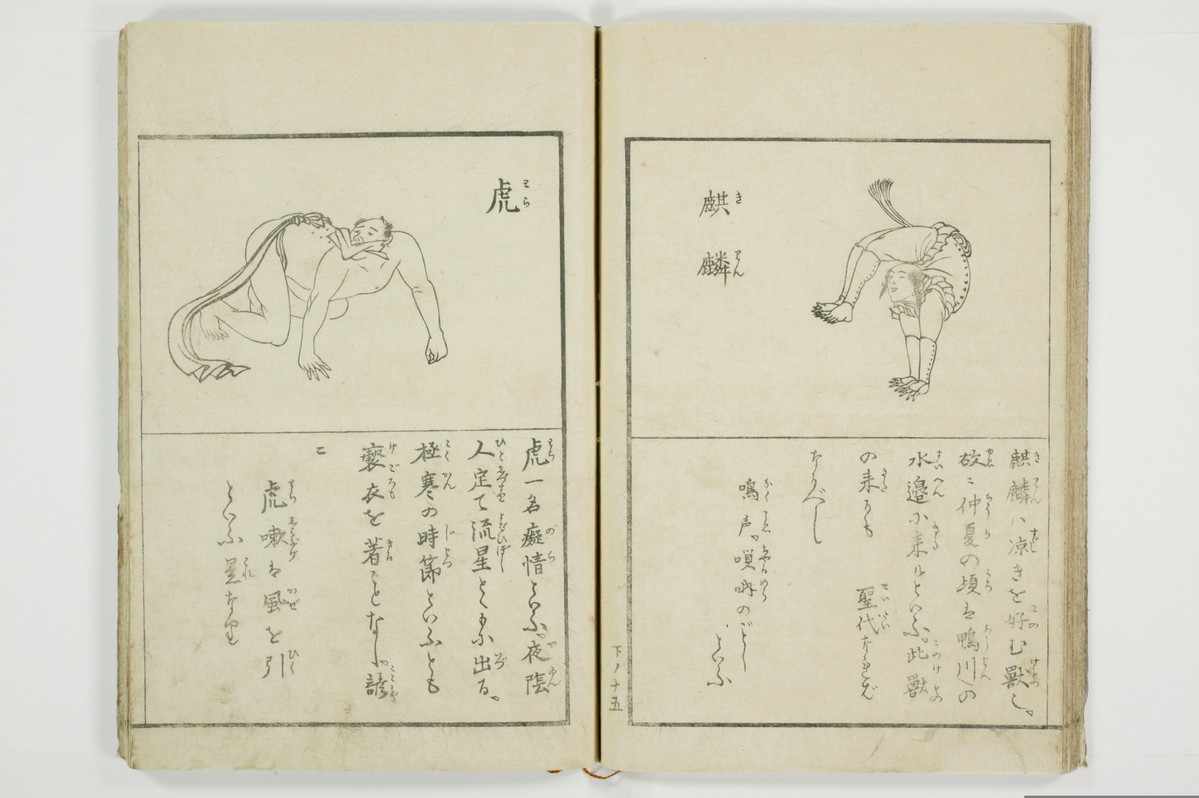 麒麟
きりん
麒麟ハ凉きを好む獣し。
故ニ仲夏の頃は鴨川への
水邉に来ルといふ。此獣
の来るも 聖代なれば
なるべし
鳴声。嘆
のごとしといふ
下ノ十五
虎
とら
虎一名癡情といふ。夜陰
人定て流星とともに出る。
極寒の時節といふとも
褻衣を著ことなし。諺
ニ
虎嗽は風を引
といふ是なり